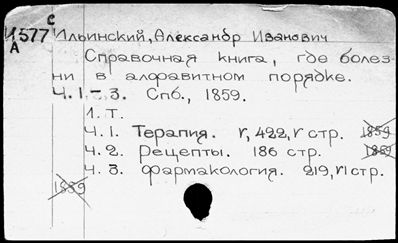 С
И577
А
Ильинский, Александр Иванович
Справочная книга, где болез-
ни в алфавитном порядке.
Ч. 1.-3. Спб., 1859.
1. т.
Ч. 1. Терапия. V, 422, V стр. 1859
Ч. 2. Рецепты. 186 стр. 1859
Ч. 3. Фармакология. 219, VI стр.
1859